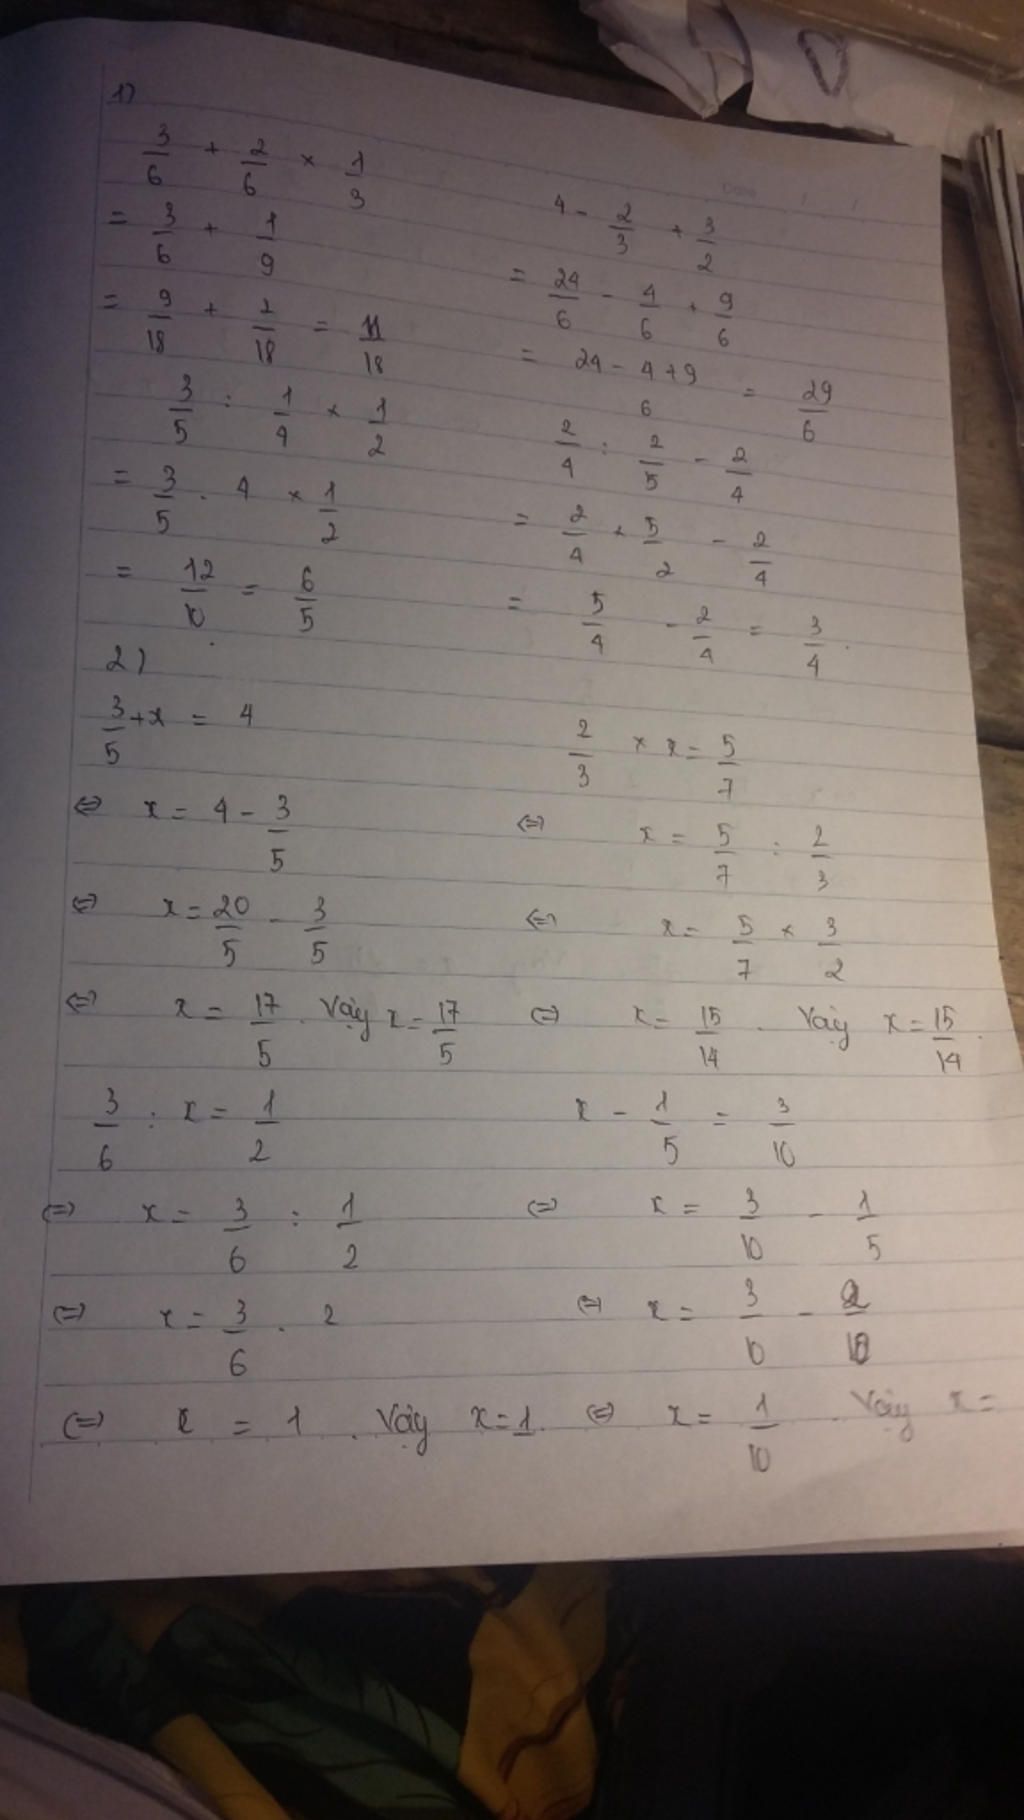 1)
3/6 + 2/6 × 1/3
= 3/6 + 1/9
= 9/18 + 2/18 = 11/18
4 - 2/3 + 3/2
= 24/6 - 4/6 + 9/6
= (24 - 4 + 9)/6 = 29/6
3/5 : 1/4 × 1/2
= 3/5 . 4 × 1/2
= 12/10 = 6/5
2/4 : 2/5 - 2/4
= 2/4 × 5/2 - 2/4
= 5/4 - 2/4 = 3/4.
2)
3/5 + x = 4
⇔ x = 4 - 3/5
⇔ x = 20/5 - 3/5
⇔ x = 17/5. Vậy x = 17/5
2/3 × x = 5/7
⇔ x = 5/7 : 2/3
⇔ x = 5/7 × 3/2
⇔ x = 15/14. Vậy x = 15/14.
3/6 : x = 1/2
⇔ x = 3/6 : 1/2
⇔ x = 3/6 . 2
⇔ x = 1. Vậy x = 1.
x - 1/5 = 3/10
⇔ x = 3/10 - 1/5
⇔ x = 3/10 - 2/10
⇔ x = 1/10. Vậy x =